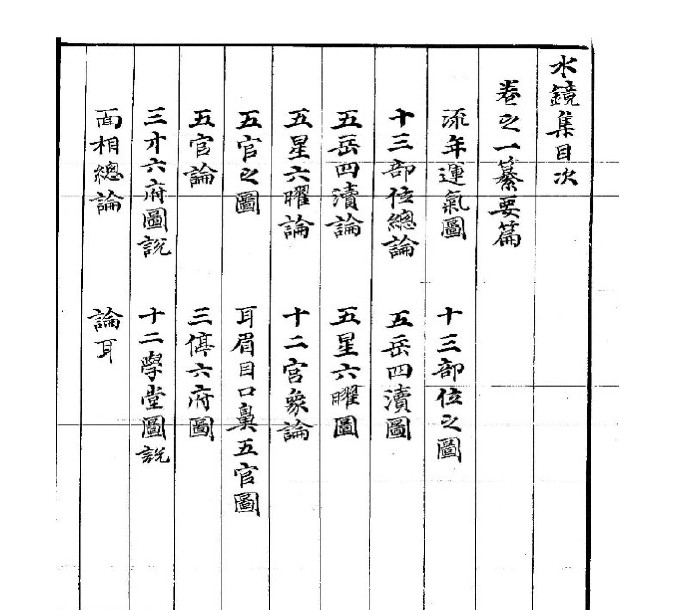 水鏡集目次
卷之一纂要篇
流年運氣圖 十三部位之圖
十三部位總論 五岳四瀆圖
五岳四瀆論 五星六曜圖
五星六曜論 十二官象論
五官之圖 耳眉目口鼻五官圖
五官論 三停六府圖
三才六府圖說 十二學堂圖說
面相總論 論耳